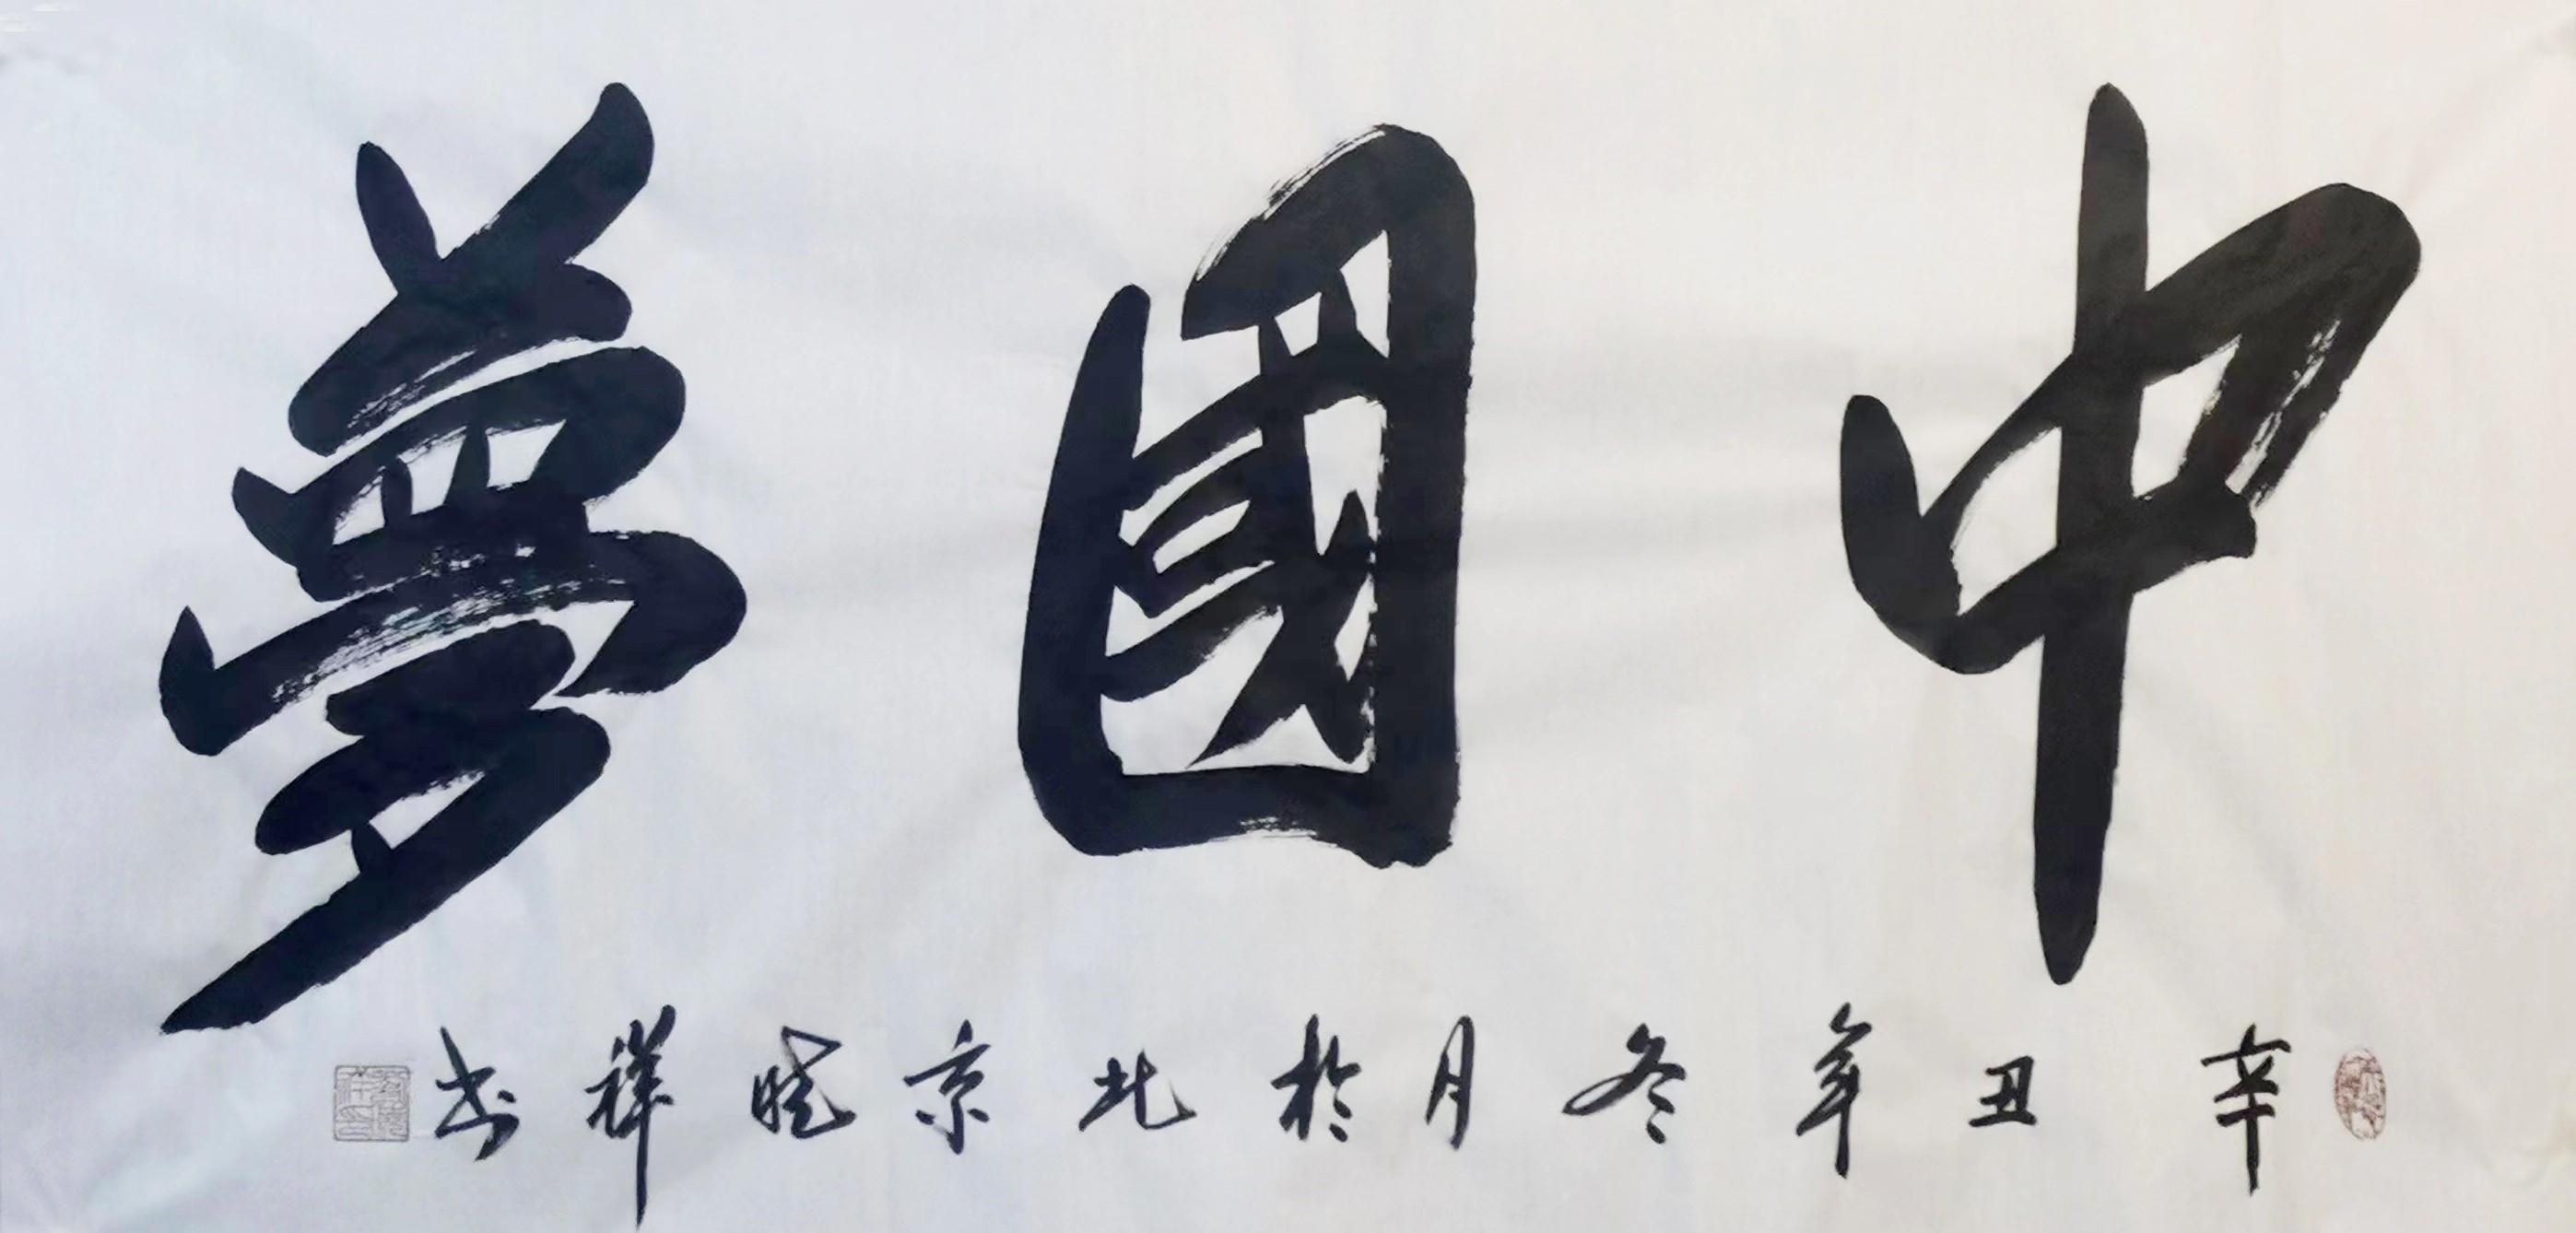 中國夢
辛丑年冬月於北京曉祥书